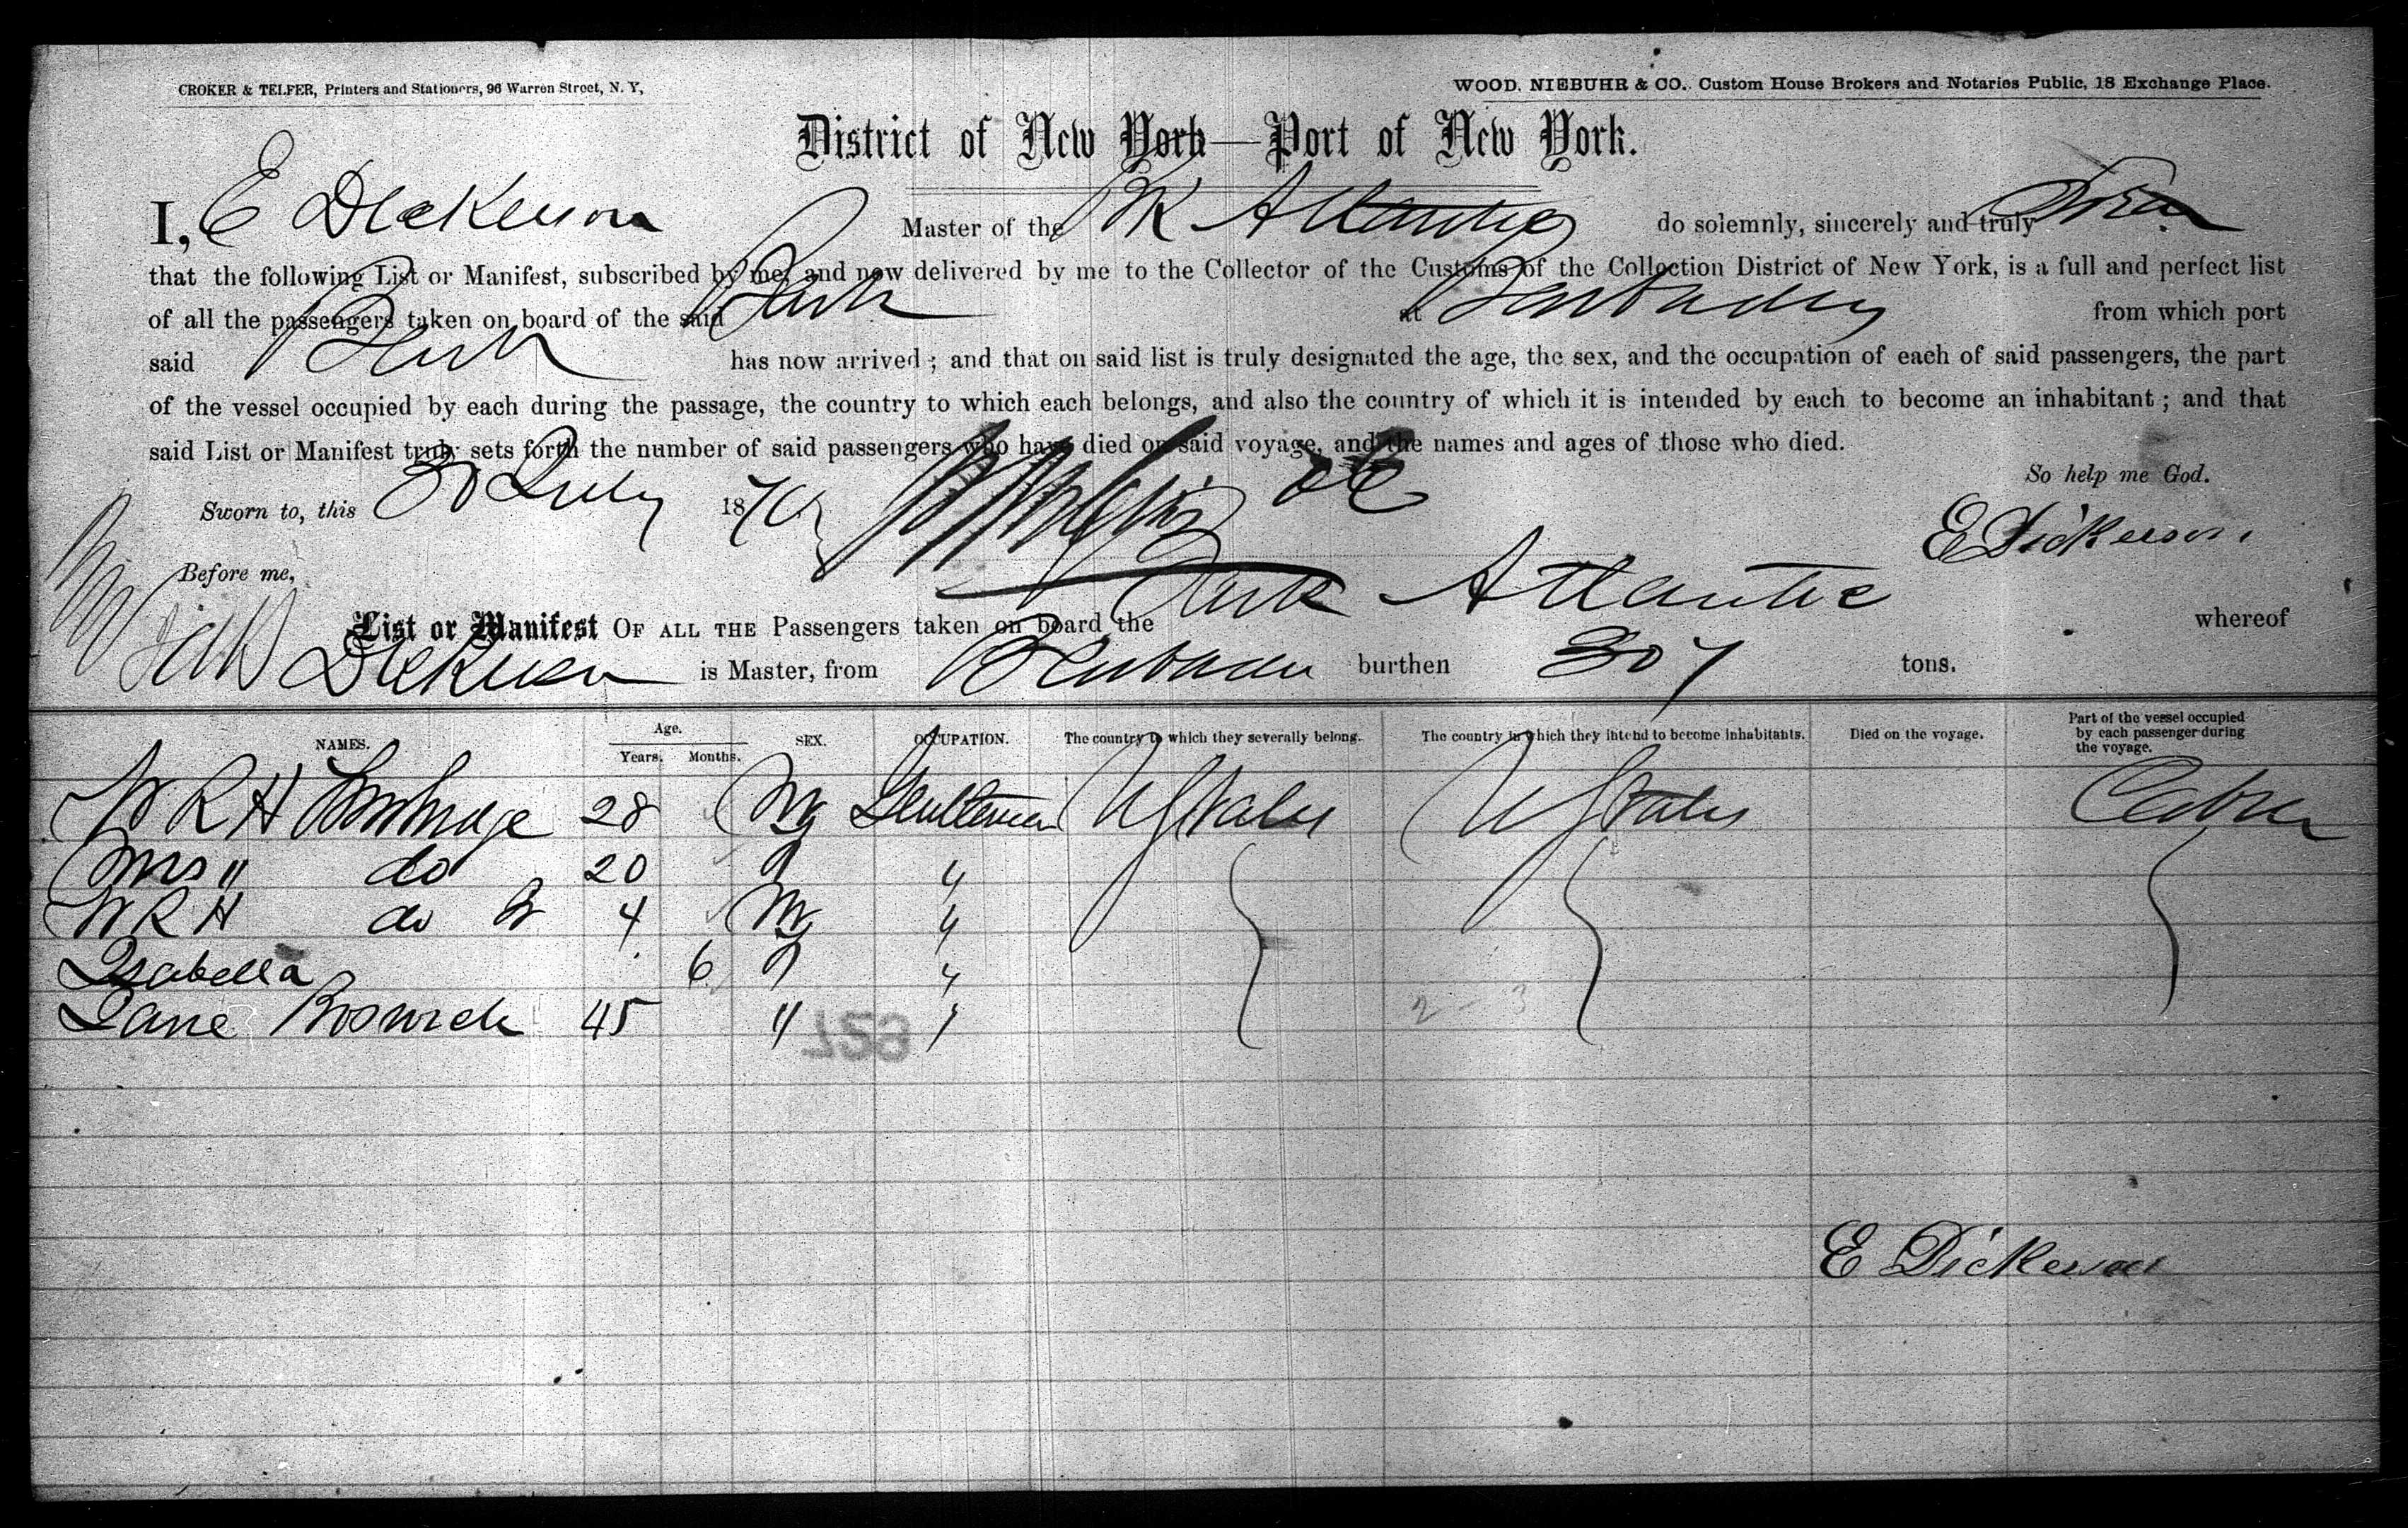 CROKER & TELFER, Printers and Stationers, 96 Warren Street, N. Y,
WOOD, NIEBUHR & CO., Custom House Brokers and Notaries Public, 18 Exchange Place.
District of New York—Port of New York.
I, E Dickerson Master of the Bk Atlantic do solemnly, sincerely and truly Swear
that the following List or Manifest, subscribed by me, and now delivered by me to the Collector of the Customs of the Collection District of New York, is a full and perfect list
of all the passengers taken on board of the said Bark at Barbadoes from which port
said Bark has now arrived; and that on said list is truly designated the age, the sex, and the occupation of each of said passengers, the part
of the vessel occupied by each during the passage, the country to which each belongs, and also the country of which it is intended by each to become an inhabitant; and that
said List or Manifest truly sets forth the number of said passengers who have died on said voyage, and the names and ages of those who died.
So help me God.
Sworn to, this 30 July 1870
E Dickerson.
Before me,
List or Manifest OF ALL THE Passengers taken on board the Bark Atlantic whereof
Dickerson is Master, from Barbadoes burthen 307 tons.
NAMES. Age. Years. Months. SEX. OCCUPATION. The country to which they severally belong. The country in which they intend to become inhabitants. Died on the voyage. Part of the vessel occupied by each passenger during the voyage.
W R H 28 M Gentleman U States U States Cabin
Mrs " do 20 f "
W R H do Jr 4 M "
Isabella 6 f "
Jane Boswick 45 " "
2 - 3
E Dickerson